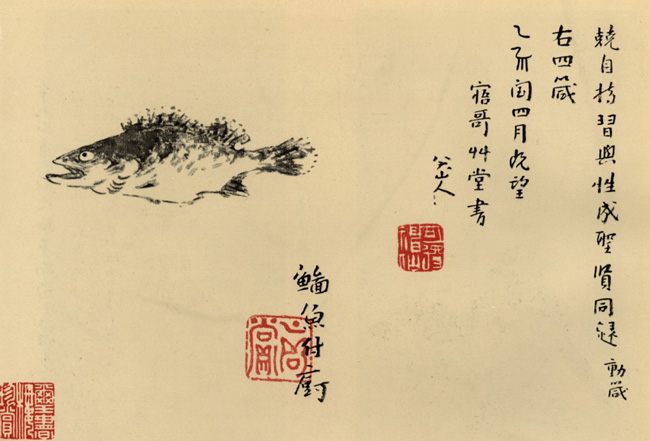 兢自持習與性成聖賢同歸 動箴
右四箴
乙亥閏四月既望
寤哥艸堂書
八大山人
魚付廚